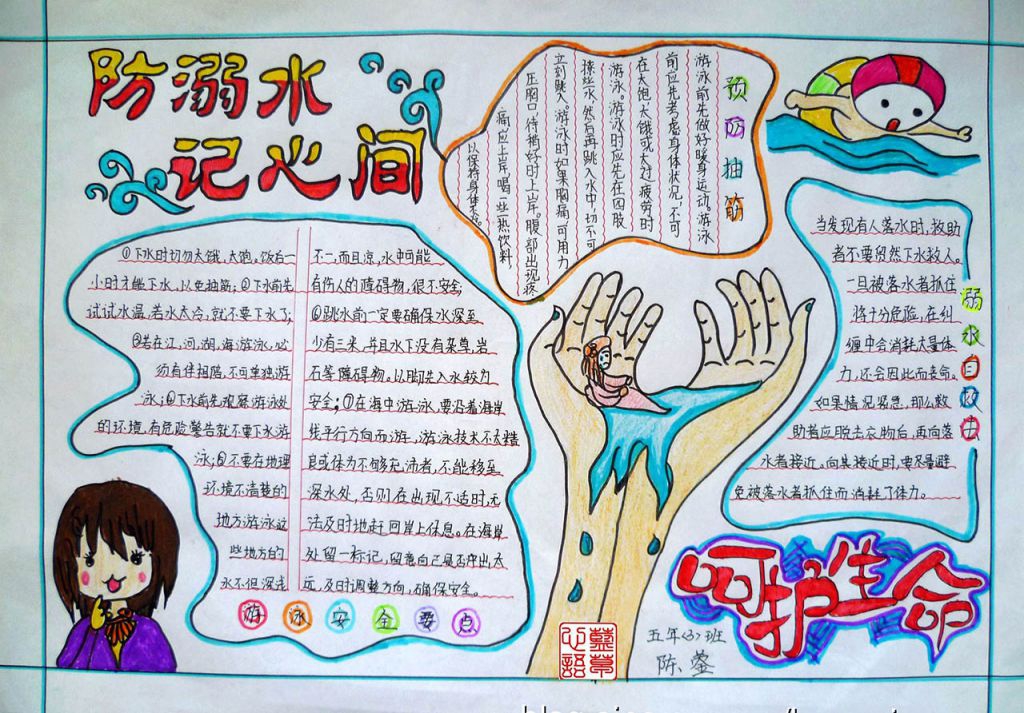 防溺水
记心间
预防抽筋
游泳前先做好暖身运动。游泳
前应先考虑身体状况,不可
在太饱、太饿或太过疲劳时
游泳。游泳时应先在四肢
撩些水,然后再跳入水中,切不可
立刻跳入。游泳时如果胸痛,可用力
压胸口,待稍好时上岸。腹部出现疼
痛应上岸,喝一些热饮料,
以保持身体
①下水时切勿太饿、太饱。饭后一
小时才能下水,以免抽筋;②下水前先
试试水温,若水太冷,就不要下水了;
③若在江、河、湖、海游泳,必
须有伴相陪,不可单独游
泳;④下水前观察游泳处
的环境,有危险警告就不要下水游
泳;⑤不要在地理
环境不清楚的
地方游泳。这
些地方的
水不但深浅
不一,而且凉,水中可能
有伤人的障碍物,很不安全;
⑥跳水前一定要确保水深至
少有三米,并且水下没有杂草、岩
石等障碍物。以脚先入水较为
安全;⑦在海中游泳,要沿着海岸
线平行方向而游,游泳技术不太精
良或体力不够充沛者,不能移至
深水处,否则在出现不适时,无
法及时地赶回岸上休息。在海岸
处留一标记,留意自己是否冲出太
远,及时调整方向,确保安全。
游泳安全要点
溺水自救法
当发现有人落水时,救助
者不要贸然下水救人。
一旦被落水者抓住
将十分危险,在纠
缠中会消耗大量体
力,还会因此而丧命。
如果情况紧急,那么救
助者应脱去衣物后,再向落
水者接近。向其接近时,要尽量避
免被落水者抓住而消耗了体力。
呵护生命
五年(3)班
陈